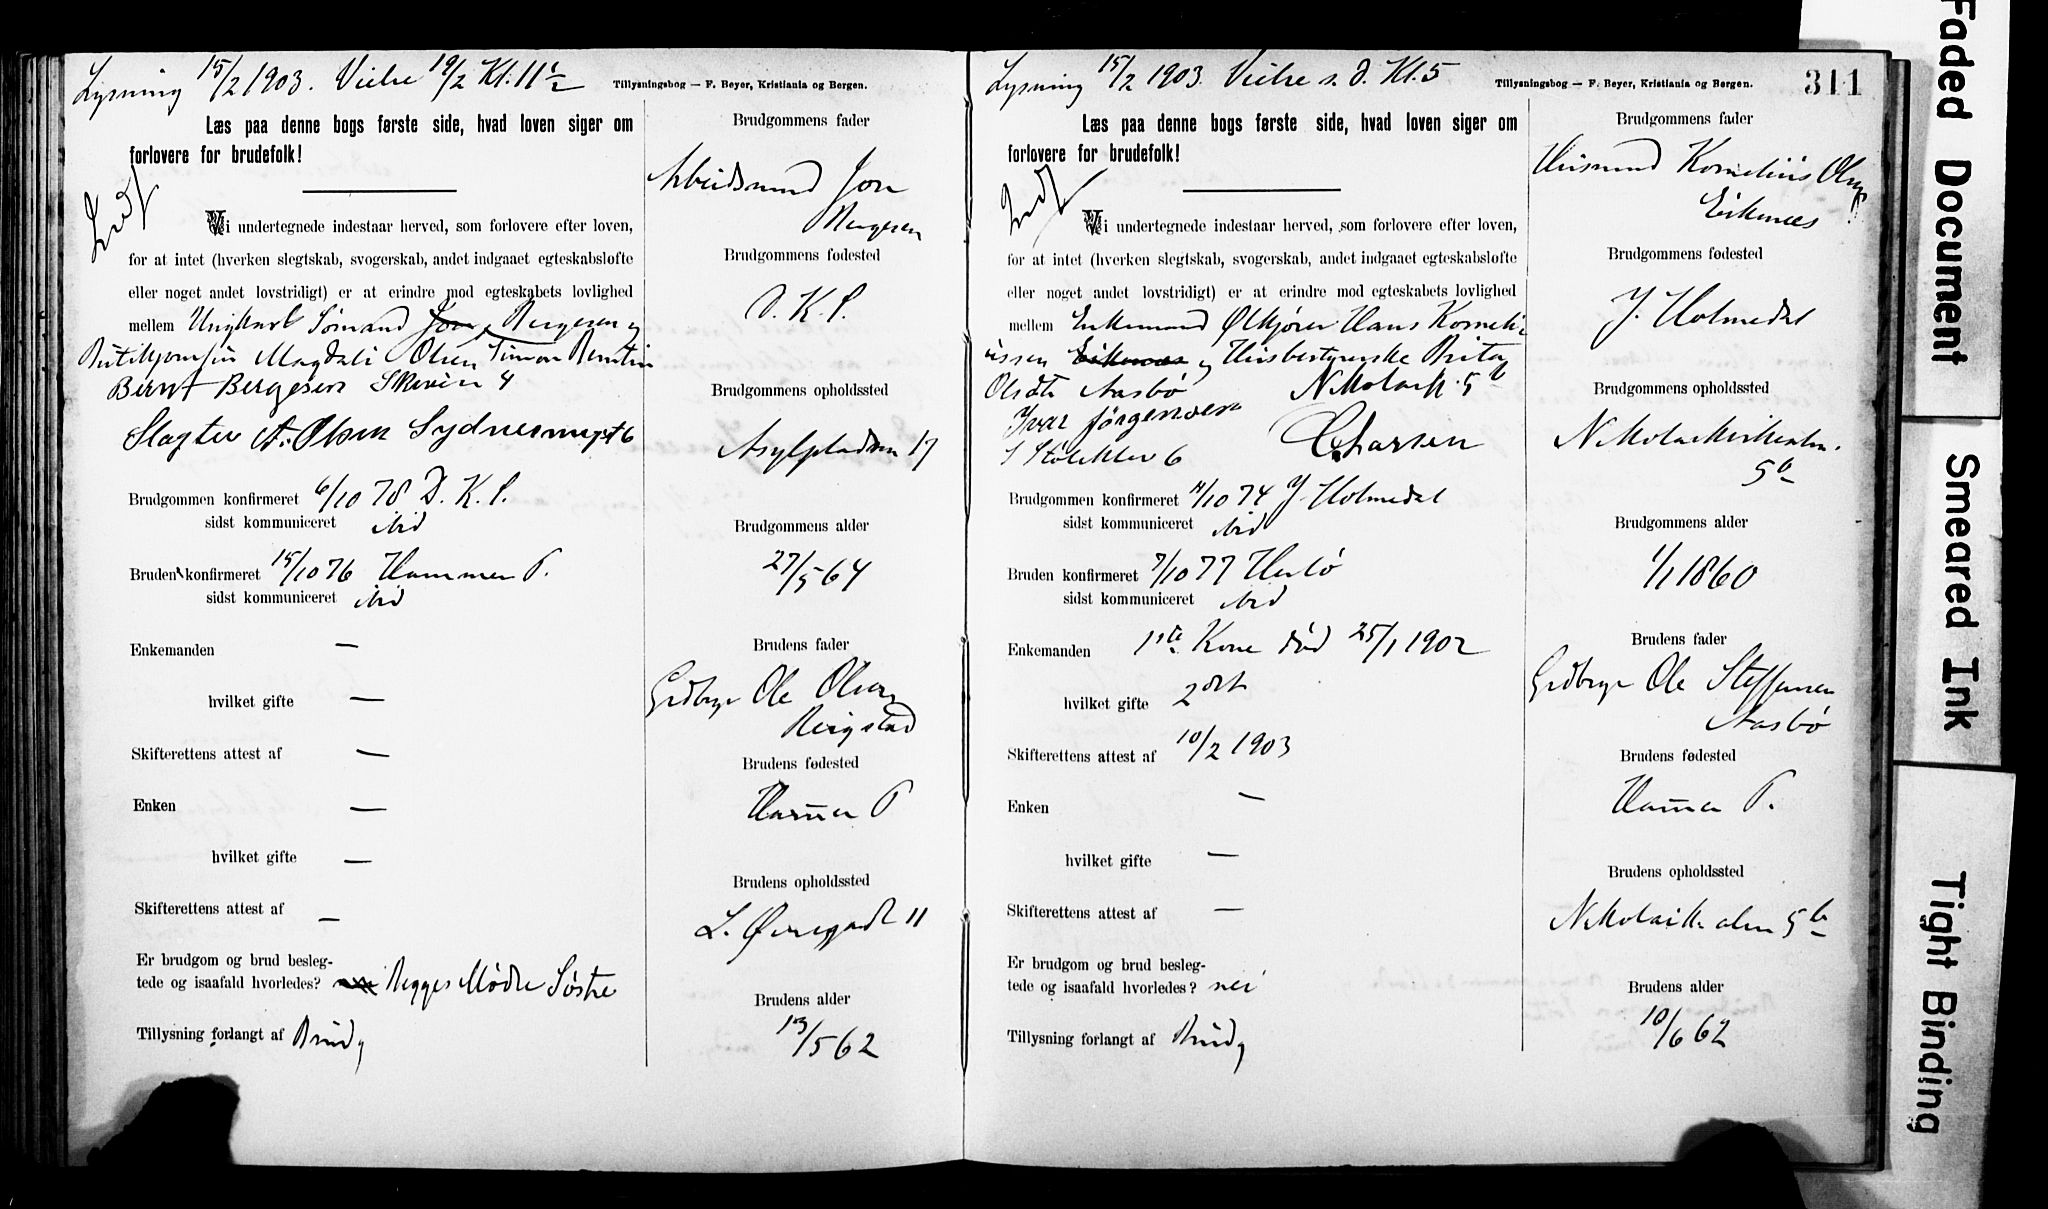 Lysning 15/2 1903. Vielse 19/2 Kl. 11½
Tillysningsbog — F. Beyer, Kristiania og Bergen.
Læs paa denne bogs første side, hvad loven siger om
forlovere for brudefolk!
Indf
Vi undertegnede indestaar herved, som forlovere efter loven,
for at intet (hverken slegtskab, svogerskab, andet indgaaet egteskabsløfte
eller noget andet lovstridigt) er at erindre mod egteskabets lovlighed
mellem Ungkarl Sømand Jon Bergesen og
Butikjomfru Magdali Olsen Simon Berntin
Bernt Bergesen Skiven 4
Slagter A. Olsen Sydnesmugt 6
Brudgommen konfirmeret 6/10 78 D. K. S.
sidst kommuniceret ibid
Bruden konfirmeret 15/10 76 Hammer P.
sidst kommuniceret ibid
Enkemanden —
hvilket gifte —
Skifterettens attest af —
Enken —
hvilket gifte —
Skifterettens attest af —
Er brudgom og brud besleg-
tede og isaafald hvorledes? Begges Mødre Søstre
Tillysning forlangt af Brudg
Brudgommens fader
Arbeidsmand Jon
Bergesen
Brudgommens fødested
D. K. S.
Brudgommens opholdssted
Asylpladsen 17
Brudgommens alder
27/5 64
Brudens fader
Grdbrgr Ole Olsen
Bergstad
Brudens fødested
Hammer P
Brudens opholdssted
L. Øvregade 11
Brudens alder
13/5 62
Lysning 15/2 1903. Vielse s. d. Kl. 5
Tillysningsbog — F. Beyer, Kristiania og Bergen.
311
Læs paa denne bogs første side, hvad loven siger om
forlovere for brudefolk!
Indf
Vi undertegnede indestaar herved, som forlovere efter loven,
for at intet (hverken slegtskab, svogerskab, andet indgaaet egteskabsløfte
eller noget andet lovstridigt) er at erindre mod egteskabets lovlighed
mellem Enkemand Ølkjører Hans Korneli-
ussen Eikenæs og Husbestyrerske Brita
Olsdtr Aasbø Nikolaik. 5b
Ivar Jørgensen
S Stølekler 6 C. Larsen
Brudgommen konfirmeret 11/10 74 Y. Holmedal
sidst kommuniceret ibid
Bruden konfirmeret 7/10 77 Herlø
sidst kommuniceret ibid
Enkemanden 1ste Kone død 25/1 1902
hvilket gifte 2det
Skifterettens attest af 10/2 1903
Enken —
hvilket gifte —
Skifterettens attest af —
Er brudgom og brud besleg-
tede og isaafald hvorledes? nei
Tillysning forlangt af Brudg
Brudgommens fader
Husmand Kornelius Olsen
Eikenæs
Brudgommens fødested
Y. Holmedal
Brudgommens opholdssted
Nikolaikirkealm.
5b
Brudgommens alder
1/1 1860
Brudens fader
Grdbrgr Ole Steffensen
Aasbø
Brudens fødested
Hammer P.
Brudens opholdssted
Nikolaik. alm 5b
Brudens alder
10/6 62
Faded Document
Smeared Ink
Tight Binding